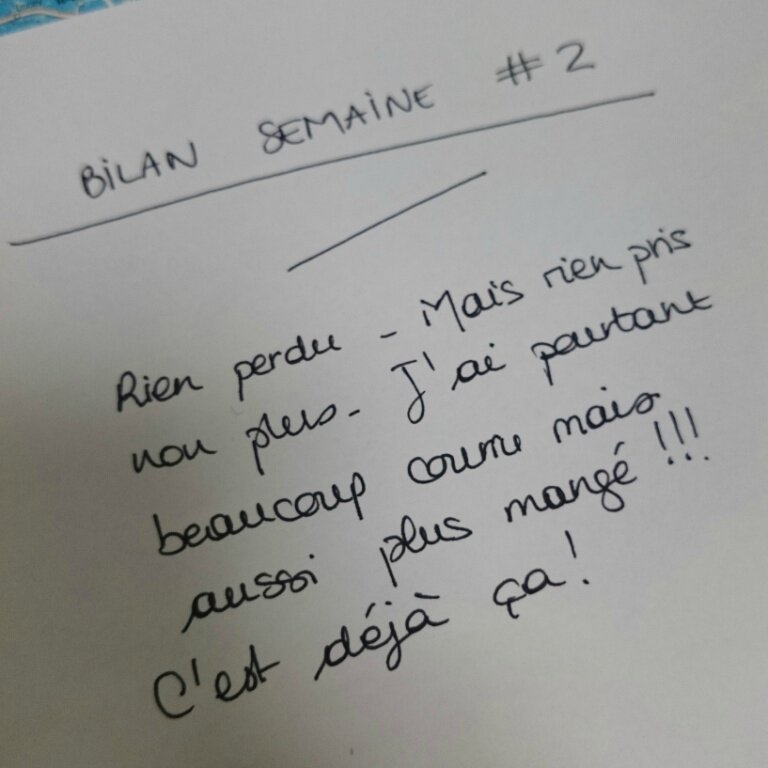 BILAN SEMAINE #2
Rien perdu - Mais rien pris
non plus - J'ai pourtant
beaucoup couru mais
aussi plus mangé !!!
C'est déjà ça !